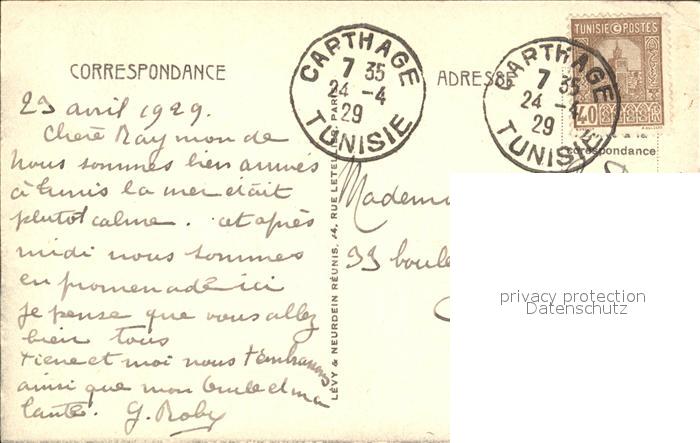 CORRESPONDANCE
ADRESSE
CARTHAGE
7 35
24 -4
29
TUNISIE
CARTHAGE
7 35
24 -4
29
TUNISIE
TUNISIE POSTES
40
correspondance
23 avril 1929.
Chère Raymonde
nous sommes bien arrivés
à tunis la mer était
plutot calme. cet après
midi nous sommes
en promenade ici
je pense que vous allez
bien tous
et moi nous t'embrassons
ainsi que mon oncle et ma
tante. G. Roby
LÉVY & NEURDEIN RÉUNIS, 44, RUE LETEL
PARIS
Mademoi
33 boule
privacy protection
Datenschutz